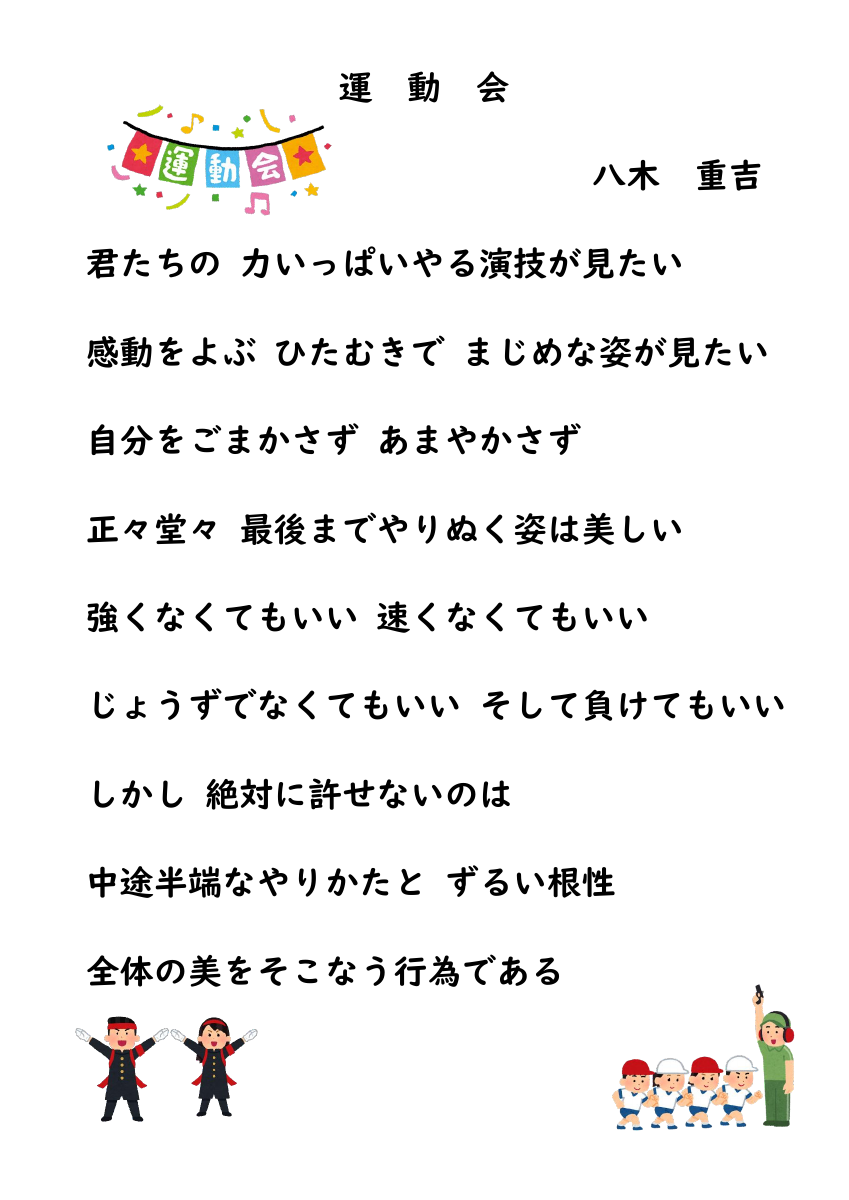 運　動　会
運動会
八木　重吉
君たちの 力いっぱいやる演技が見たい
感動をよぶ ひたむきで まじめな姿が見たい
自分をごまかさず あまやかさず
正々堂々 最後までやりぬく姿は美しい
強くなくてもいい 速くなくてもいい
じょうずでなくてもいい そして負けてもいい
しかし 絶対に許せないのは
中途半端なやりかたと ずるい根性
全体の美をそこなう行為である